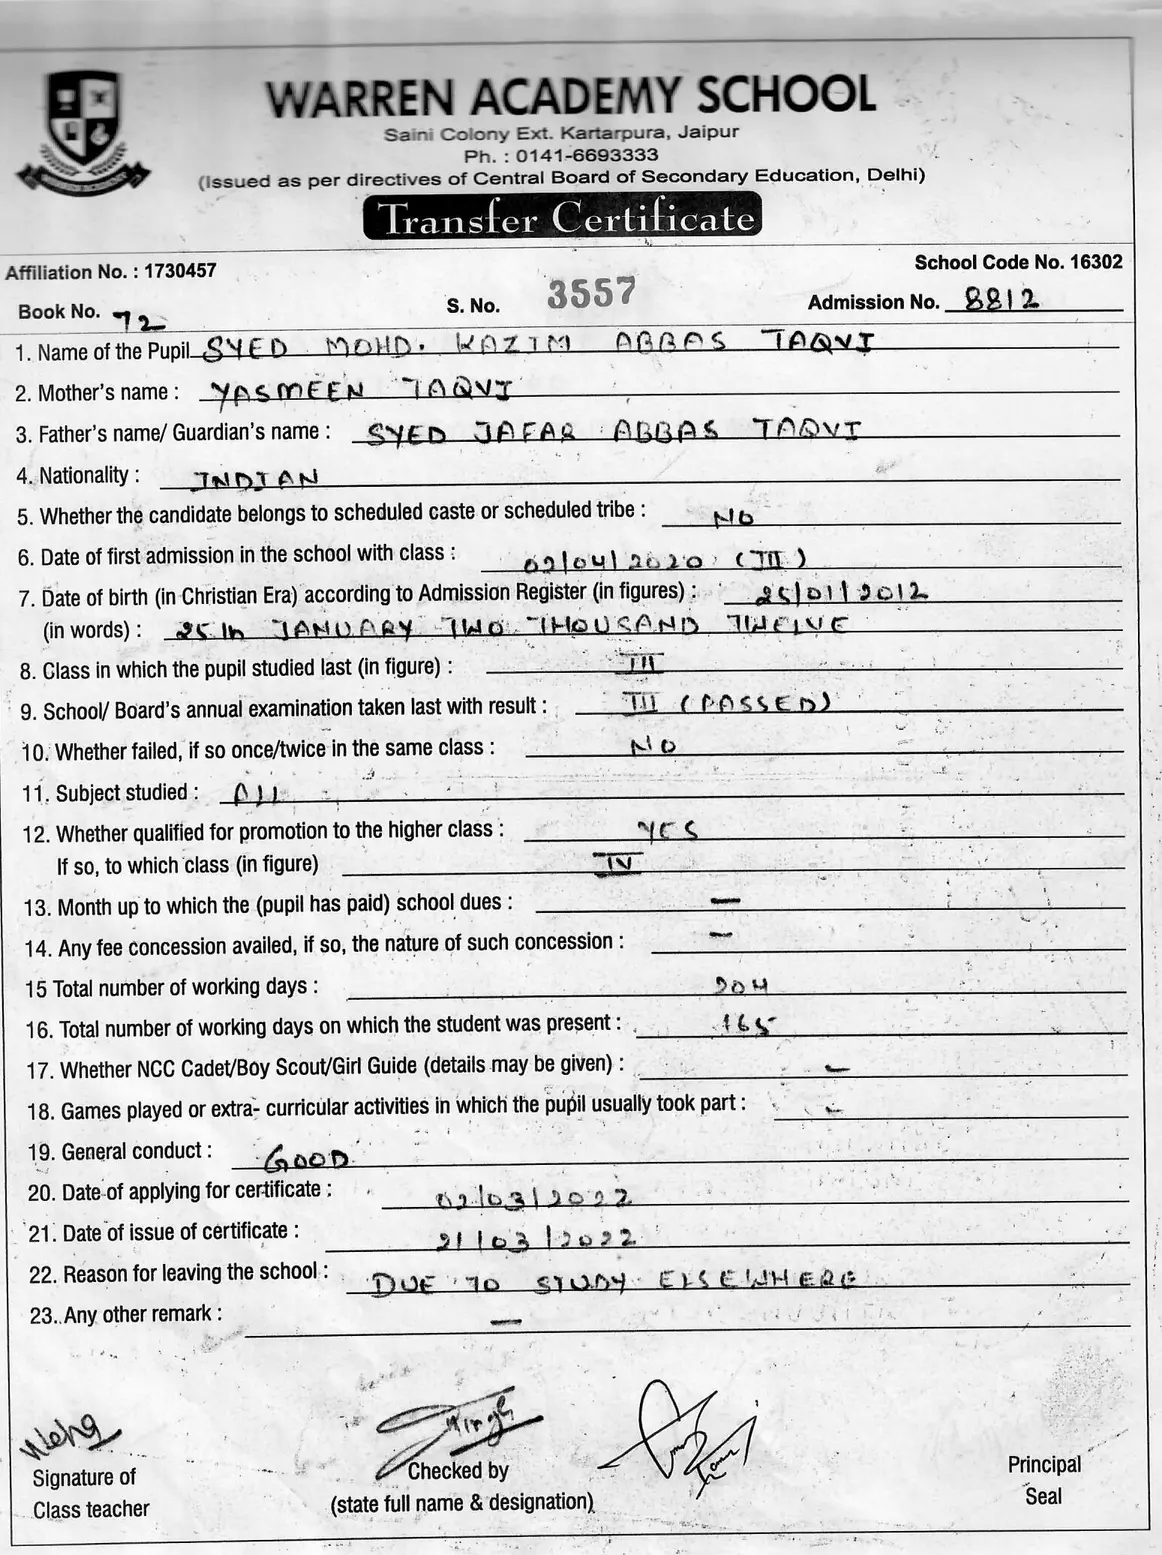 WARREN ACADEMY SCHOOL
Saini Colony Ext. Kartarpura, Jaipur
Ph. : 0141-6693333
(Issued as per directives of Central Board of Secondary Education, Delhi)
Transfer Certificate
Affiliation No. : 1730457 School Code No. 16302
Book No. 72 S. No. 3557 Admission No. 8812
1. Name of the Pupil SYED MOHD. KAZIM ABBAS TAQVI
2. Mother's name : YASMEEN TAQVI
3. Father's name/ Guardian's name : SYED JAFAR ABBAS TAQVI
4. Nationality : INDIAN
5. Whether the candidate belongs to scheduled caste or scheduled tribe : NO
6. Date of first admission in the school with class : 02/04/2020 (III)
7. Date of birth (in Christian Era) according to Admission Register (in figures) : 25/01/2012
(in words) : 25th JANUARY TWO THOUSAND TWELVE
8. Class in which the pupil studied last (in figure) : III
9. School/ Board's annual examination taken last with result : III (PASSED)
10. Whether failed, if so once/twice in the same class : NO
11. Subject studied : All
12. Whether qualified for promotion to the higher class : YES
If so, to which class (in figure) IV
13. Month up to which the (pupil has paid) school dues : —
14. Any fee concession availed, if so, the nature of such concession : —
15 Total number of working days : 204
16. Total number of working days on which the student was present : 165
17. Whether NCC Cadet/Boy Scout/Girl Guide (details may be given) : —
18. Games played or extra- curricular activities in which the pupil usually took part : —
19. General conduct : GOOD
20. Date of applying for certificate : 02/03/2022
21. Date of issue of certificate : 21/03/2022
22. Reason for leaving the school : DUE TO STUDY ELSEWHERE
23. Any other remark : —
Signature of
Class teacher
Checked by
(state full name & designation)
Principal
Seal